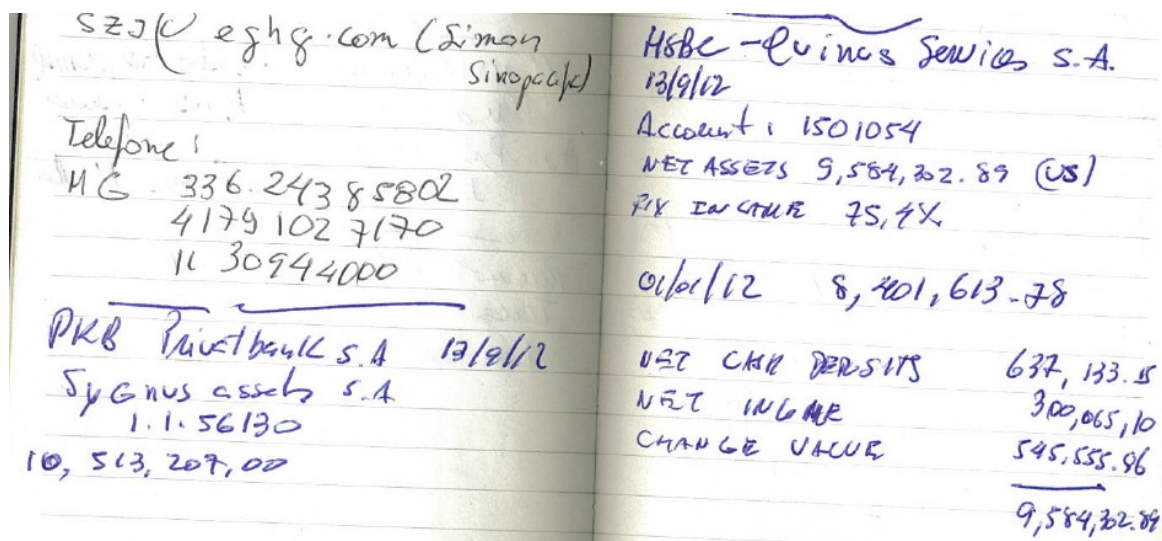 SZJ@eghg.com (Simon
Sinopack)
Telefone:
MG 336.243 85802
4179 102 7170
11 30944000
PKB Privatbank S.A 13/9/12
Sygnus assets S.A
1.1.56130
10,513,207,00
HSBC - Quinus Services S.A.
13/9/12
Account: 1501054
NET ASSETS 9,584,302.89 (US)
FIX INCOME 75,4%
01/01/12 8,401,613.78
NET CASH DEPOSITS 637,133.15
NET INCOME 300,065,10
CHANGE VALUE 545,555.96
9,584,302.89